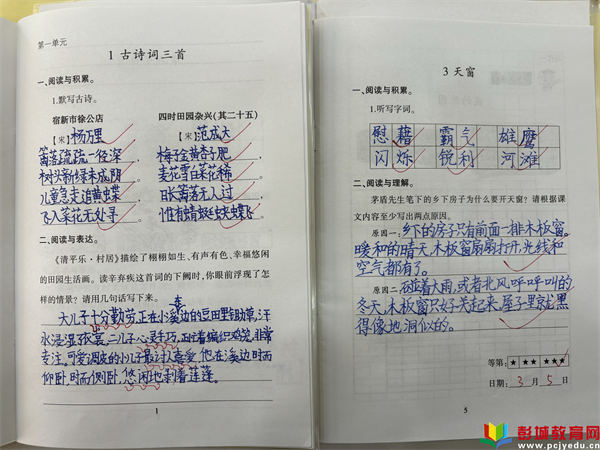 第一单元
1 古诗词三首
一、阅读与积累。
1.默写古诗。
宿新市徐公店
【宋】杨万里
篱落疏疏一径深,
树头新绿未成阴。
儿童急走追黄蝶,
飞入菜花无处寻。
四时田园杂兴(其二十五)
【宋】范成大
梅子金黄杏子肥,
麦花雪白菜花稀。
日长篱落无人过,
惟有蜻蜓蛱蝶飞。
二、阅读与表达。
《清平乐·村居》描绘了栩栩如生、有声有色、幸福悠闲
的田园生活画。读辛弃疾这首词的下阕时,你眼前浮现了怎
样的情景?请用几句话写下来。
大儿子十分勤劳,正在小溪边的豆田里锄草,汗
水浸湿衣裳。二儿子心灵手巧,正忙着编织鸡笼,非常
专注。可爱调皮的小儿子最讨人喜爱,他在溪边时而
仰卧,时而侧卧,悠闲地剥着莲蓬。
1
3 天窗
一、阅读与积累。
1.听写字词。
慰藉 霸气 雄鹰
闪烁 锐利 河滩
二、阅读与理解。
茅盾先生笔下的乡下房子为什么要开天窗?请根据课
文内容至少写出两点原因。
原因一:乡下的房子只有前面一排木板窗。
暖和的晴天,木板窗扇扇打开,光线和
空气都有了。
原因二:碰着大雨,或者北风呼呼叫的
冬天,木板窗只好关起来,屋子里就黑
得像地洞似的。
等第:★ ★★ ★★★
日期:3月5日
5
彭城教育网
www.pcjyedu.cn